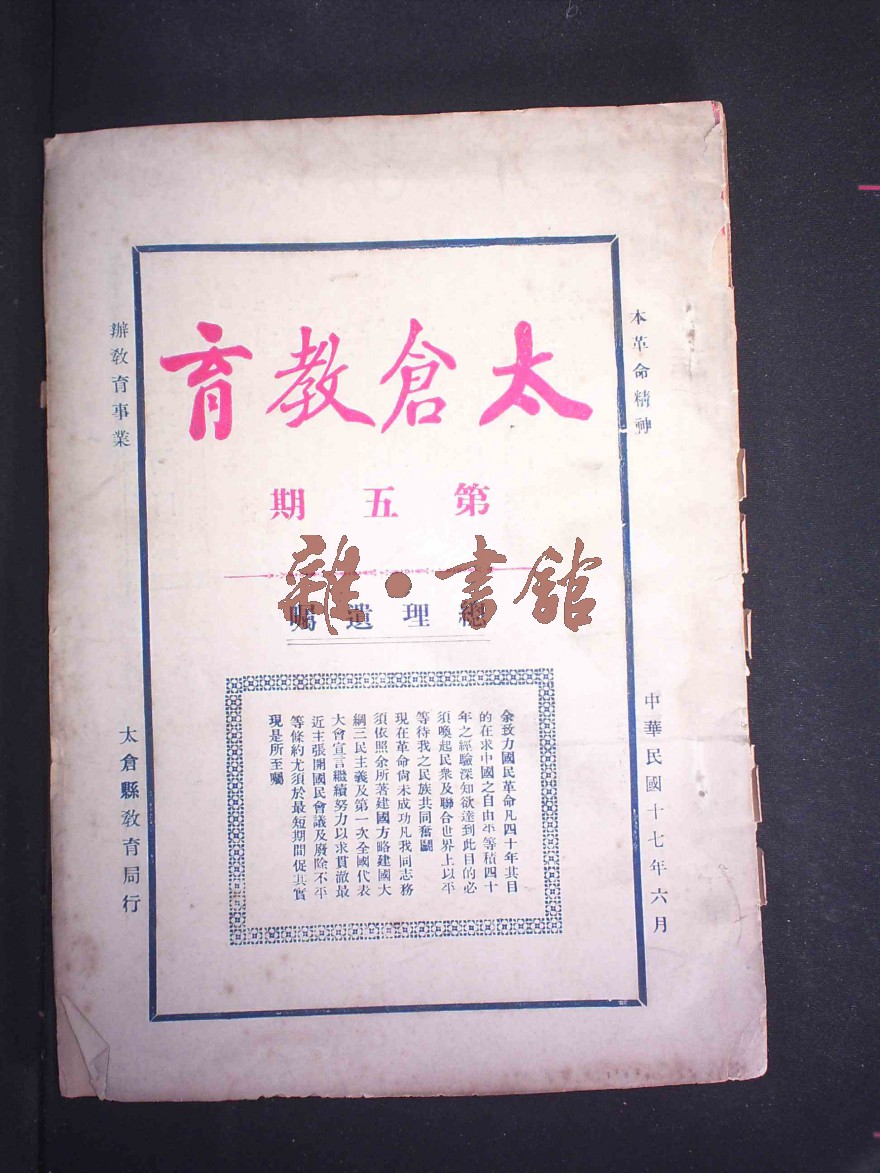 太倉教育
第五期
雜·書館
總理遺囑
余致力國民革命凡四十年其目
的在求中國之自由平等積四十
年之經驗深知欲達到此目的必
須喚起民衆及聯合世界上以平
等待我之民族共同奮鬭
現在革命尙未成功凡我同志務
須依照余所著建國方略建國大
綱三民主義及第一次全國代表
大會宣言繼續努力以求貫澈最
近主張開國民會議及廢除不平
等條約尤須於最短期間促其實
現是所至囑
本革命精神
辦教育事業
中華民國十七年六月
太倉縣教育局行